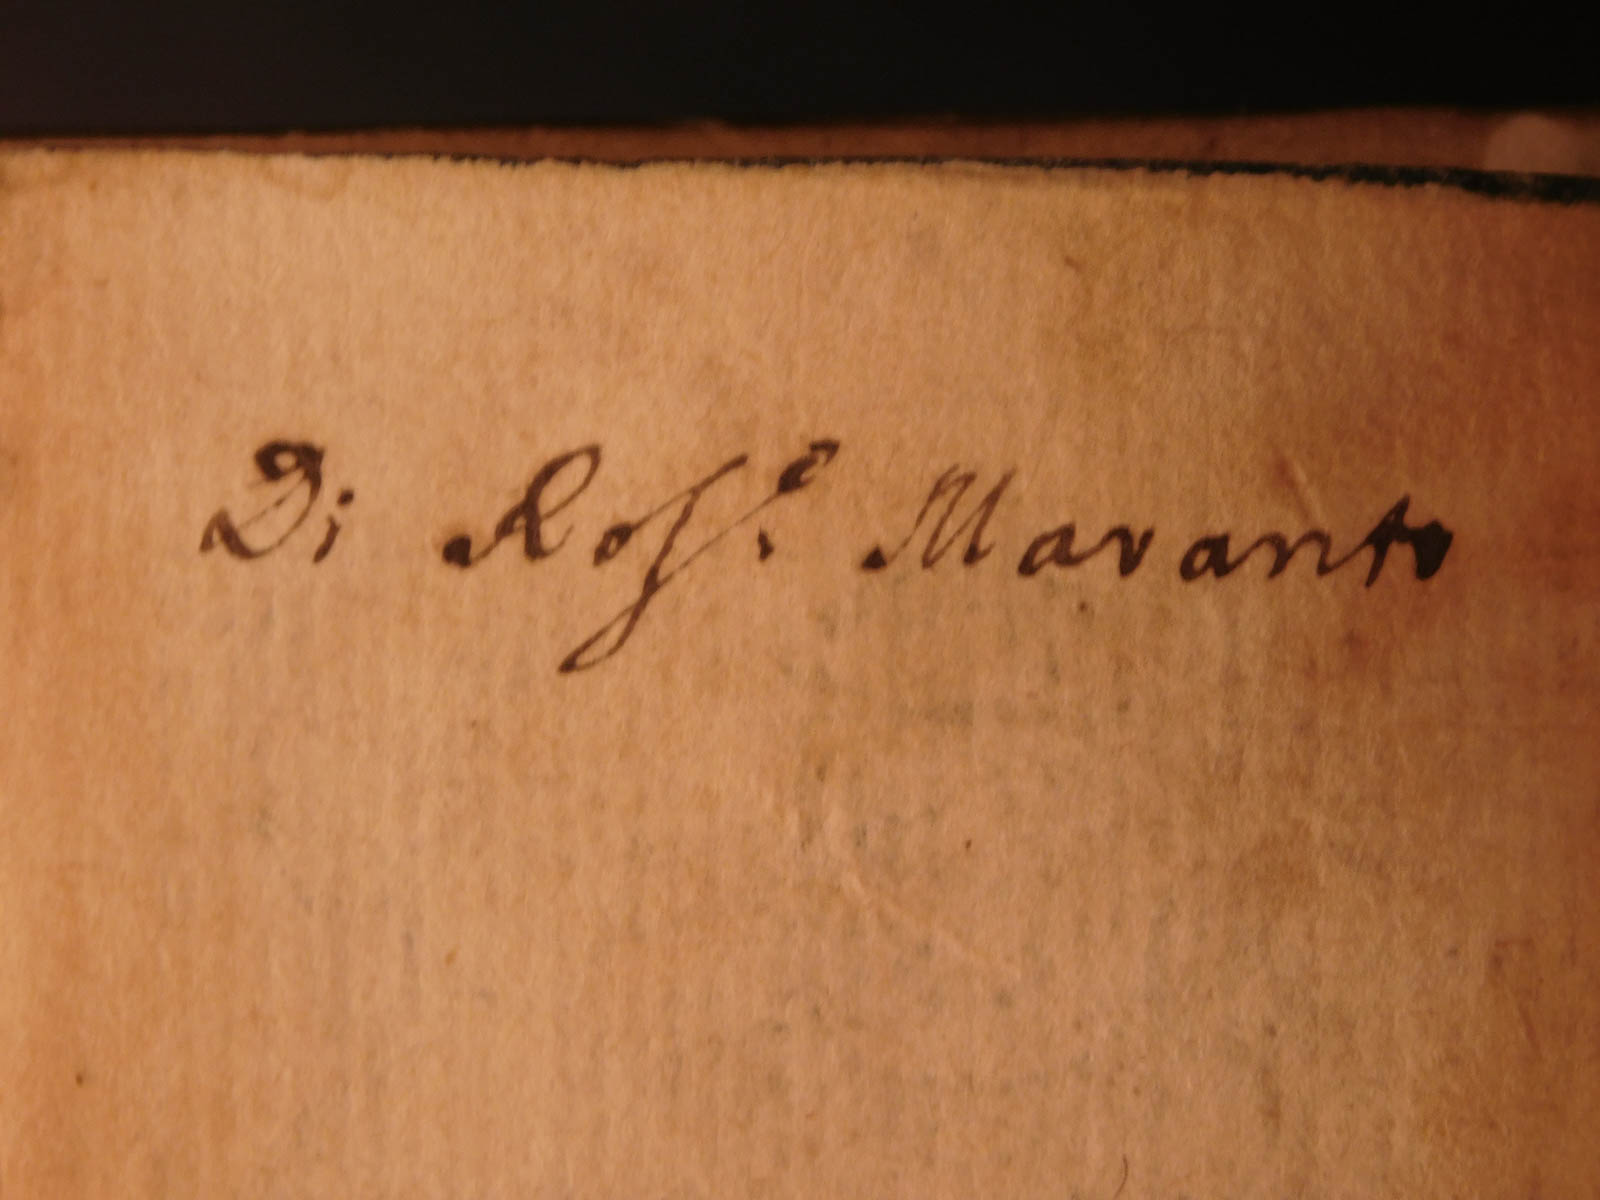 Di Roſ.º Maranto